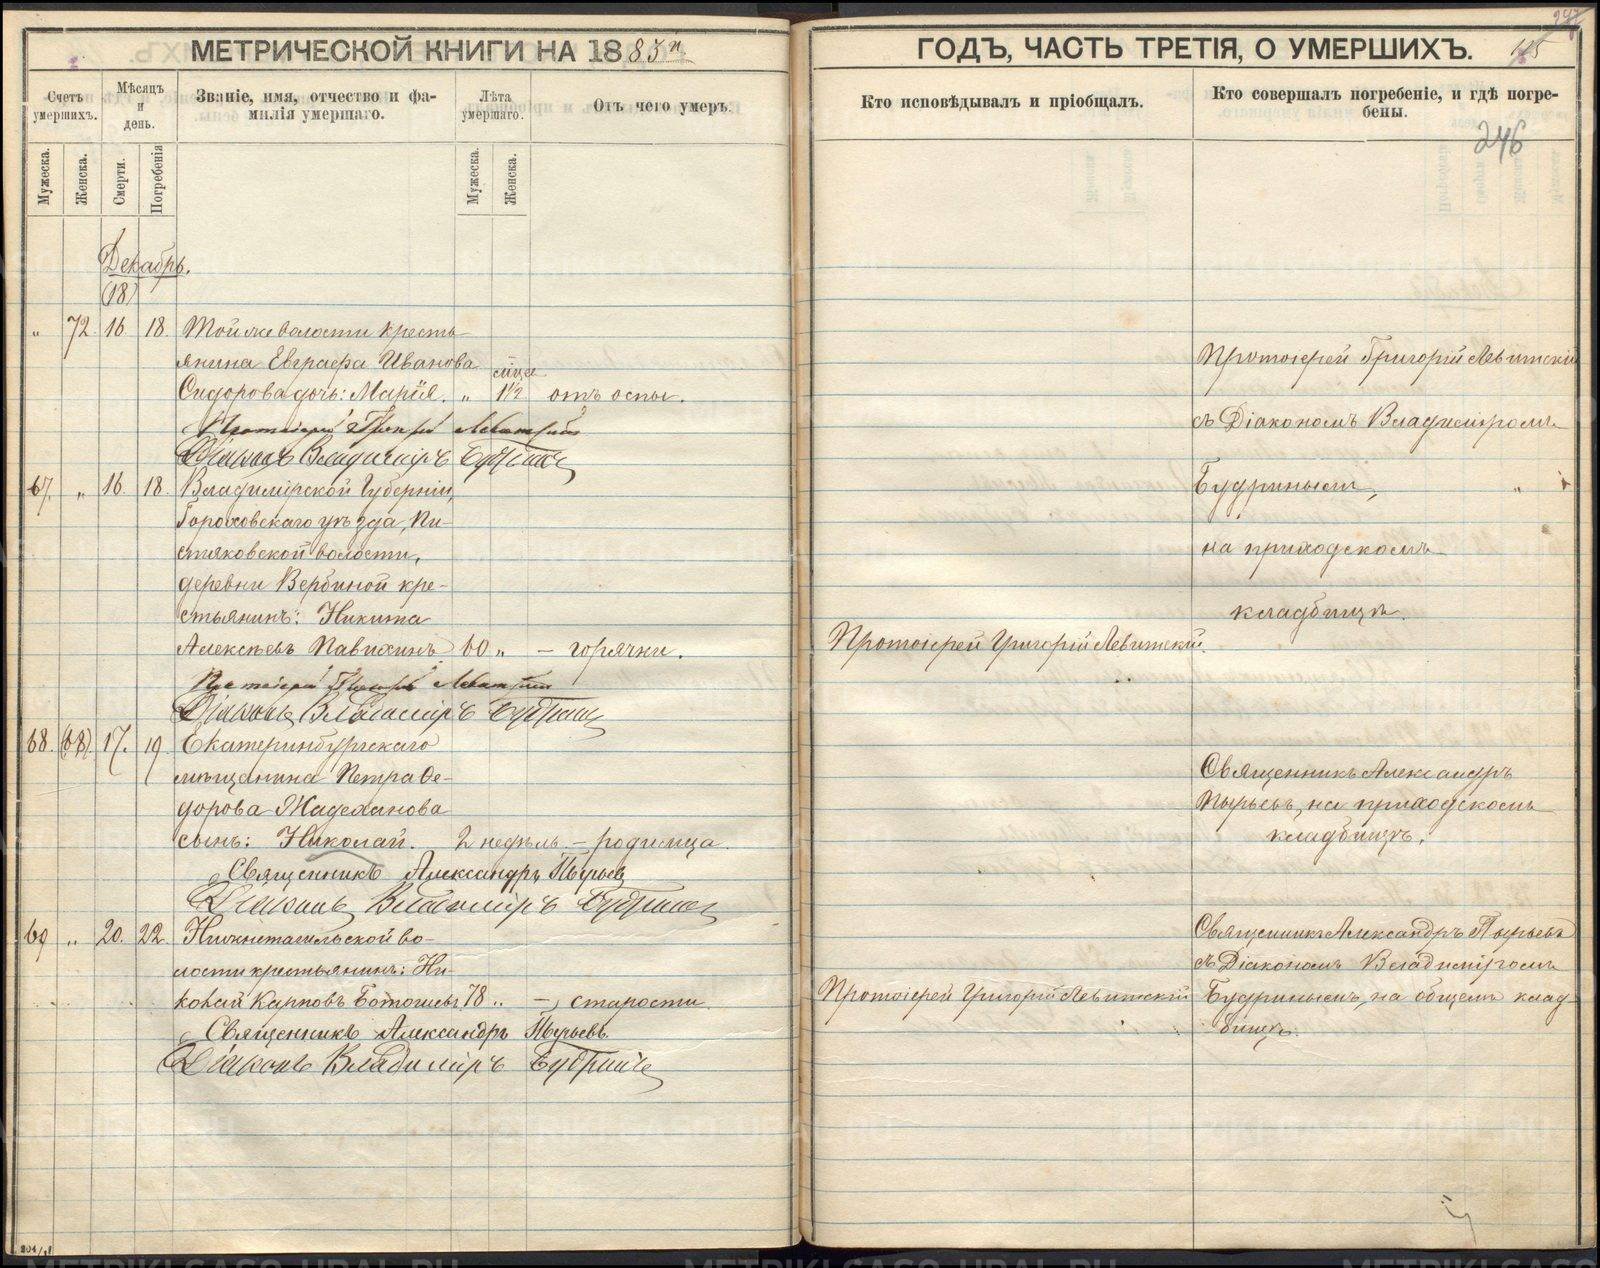 МЕТРИЧЕСКОЙ КНИГИ НА 1885й
Счетъ умершихъ.
Мѣсяцъ и день.
Званіе, имя, отчество и фа-
милія умершаго.
Лѣта умершаго.
Отъ чего умеръ.
Мужеска.
Женска.
Смерти.
Погребенія
Мужеска.
Женска.
Декабрь.
(18)
„ 72. 16. 18. Той же волости кресть-
янина Евграфа Иванова
мѣся
Сидорова дочь: Марія. „ 1½ отъ оспы.
Протоіерей Григорій Левитскій
Діаконъ Владиміръ Будринъ
67. „ 16. 18. Владимірской Губерніи,
Гороховскаго уѣзда, Пи-
стяковской волости,
деревни Вербиной кре-
стьянинъ: Никита
Алексѣевъ Павихинъ 60 „ — горячки.
Протоіерей Григорій Левитскій
Діаконъ Владиміръ Будринъ
68. (68). 17. 19. Екатеринбургскаго
мѣщанина Петра Ѳе-
дорова Жадеханова
сынъ: Николай. 2 недѣль. — родимца.
Священникъ Александръ Пырьев
Діаконъ Владиміръ Будринъ
69 „ 20. 22. Нижнетагильской во-
лости крестьянинъ: Ни-
колай Карповъ 78 „ — старости
Священникъ Александръ Пырьевъ.
Діаконъ Владиміръ Будринъ
204/
ГОДЪ, ЧАСТЬ ТРЕТІЯ, О УМЕРШИХЪ.
Кто исповѣдывалъ и пріобщалъ.
Кто совершалъ погребеніе, и гдѣ погре-
бены.
246
Протоіерей Григорій Левитскій
съ Діакономъ Владиміромъ
Будринымъ,
на приходскомъ
кладбищѣ.
Протоіерей Григорій Левитскій.
Священникъ Александръ
Пырьевъ, на приходскомъ
кладбищѣ.
Священникъ Александръ Пырьевъ
съ Діакономъ Владиміромъ
Протоіерей Григорій Левитскій
Будринымъ, на общемъ клад
бищѣ.
METRIKI.GASO-URAL.RU
METRIKI.GASO-URAL.RU